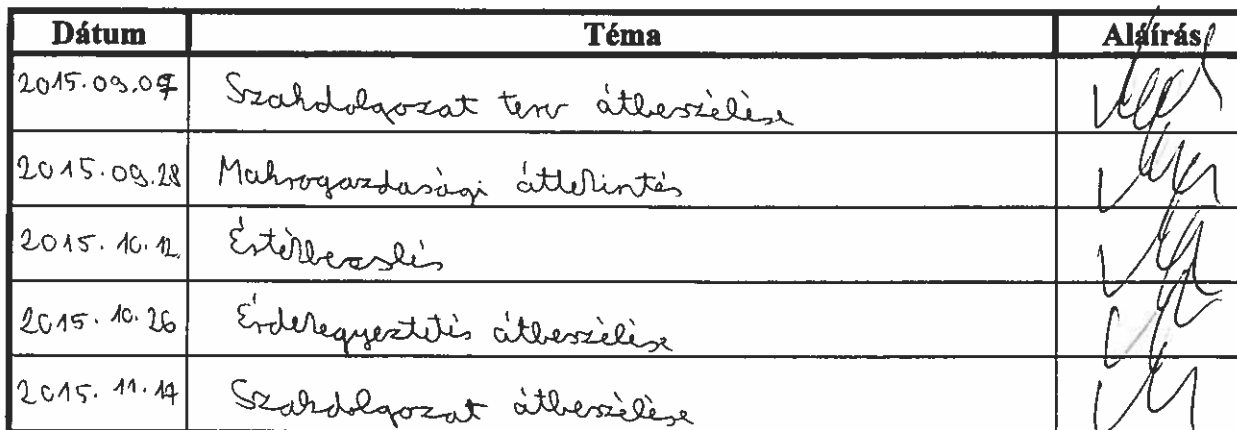 Dátum Téma Aláírás
2015.09.07 Szakdolgozat terv átbeszélése
2015.09.28 Makrogazdasági áttekintés
2015.10.12. Értékbecslés
2015.10.26 Érdekegyeztetés átbeszélése
2015.11.14 Szakdolgozat átbeszélése